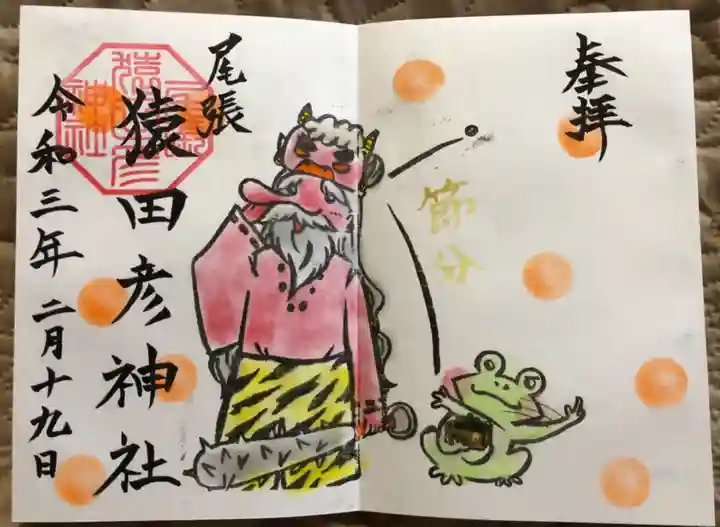 奉拝
節分
尾張
猿田彦神社
令和三年二月十九日